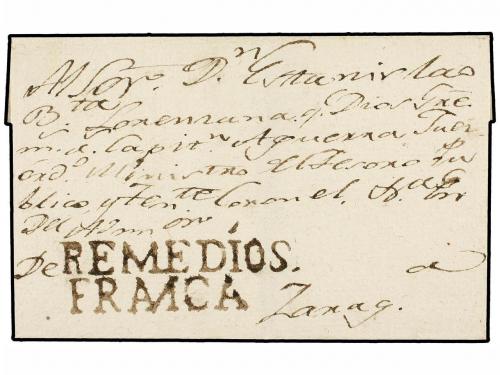 Al Sor. Dn Estanislao
Bta Lorenzana q. Dios Gue
m. a. Capitn Aguerra
Ministro Tesoro Pu
blico, y Tente Coronel.
Del Admor
De REMEDIOS. a
FRANCA Zarag.